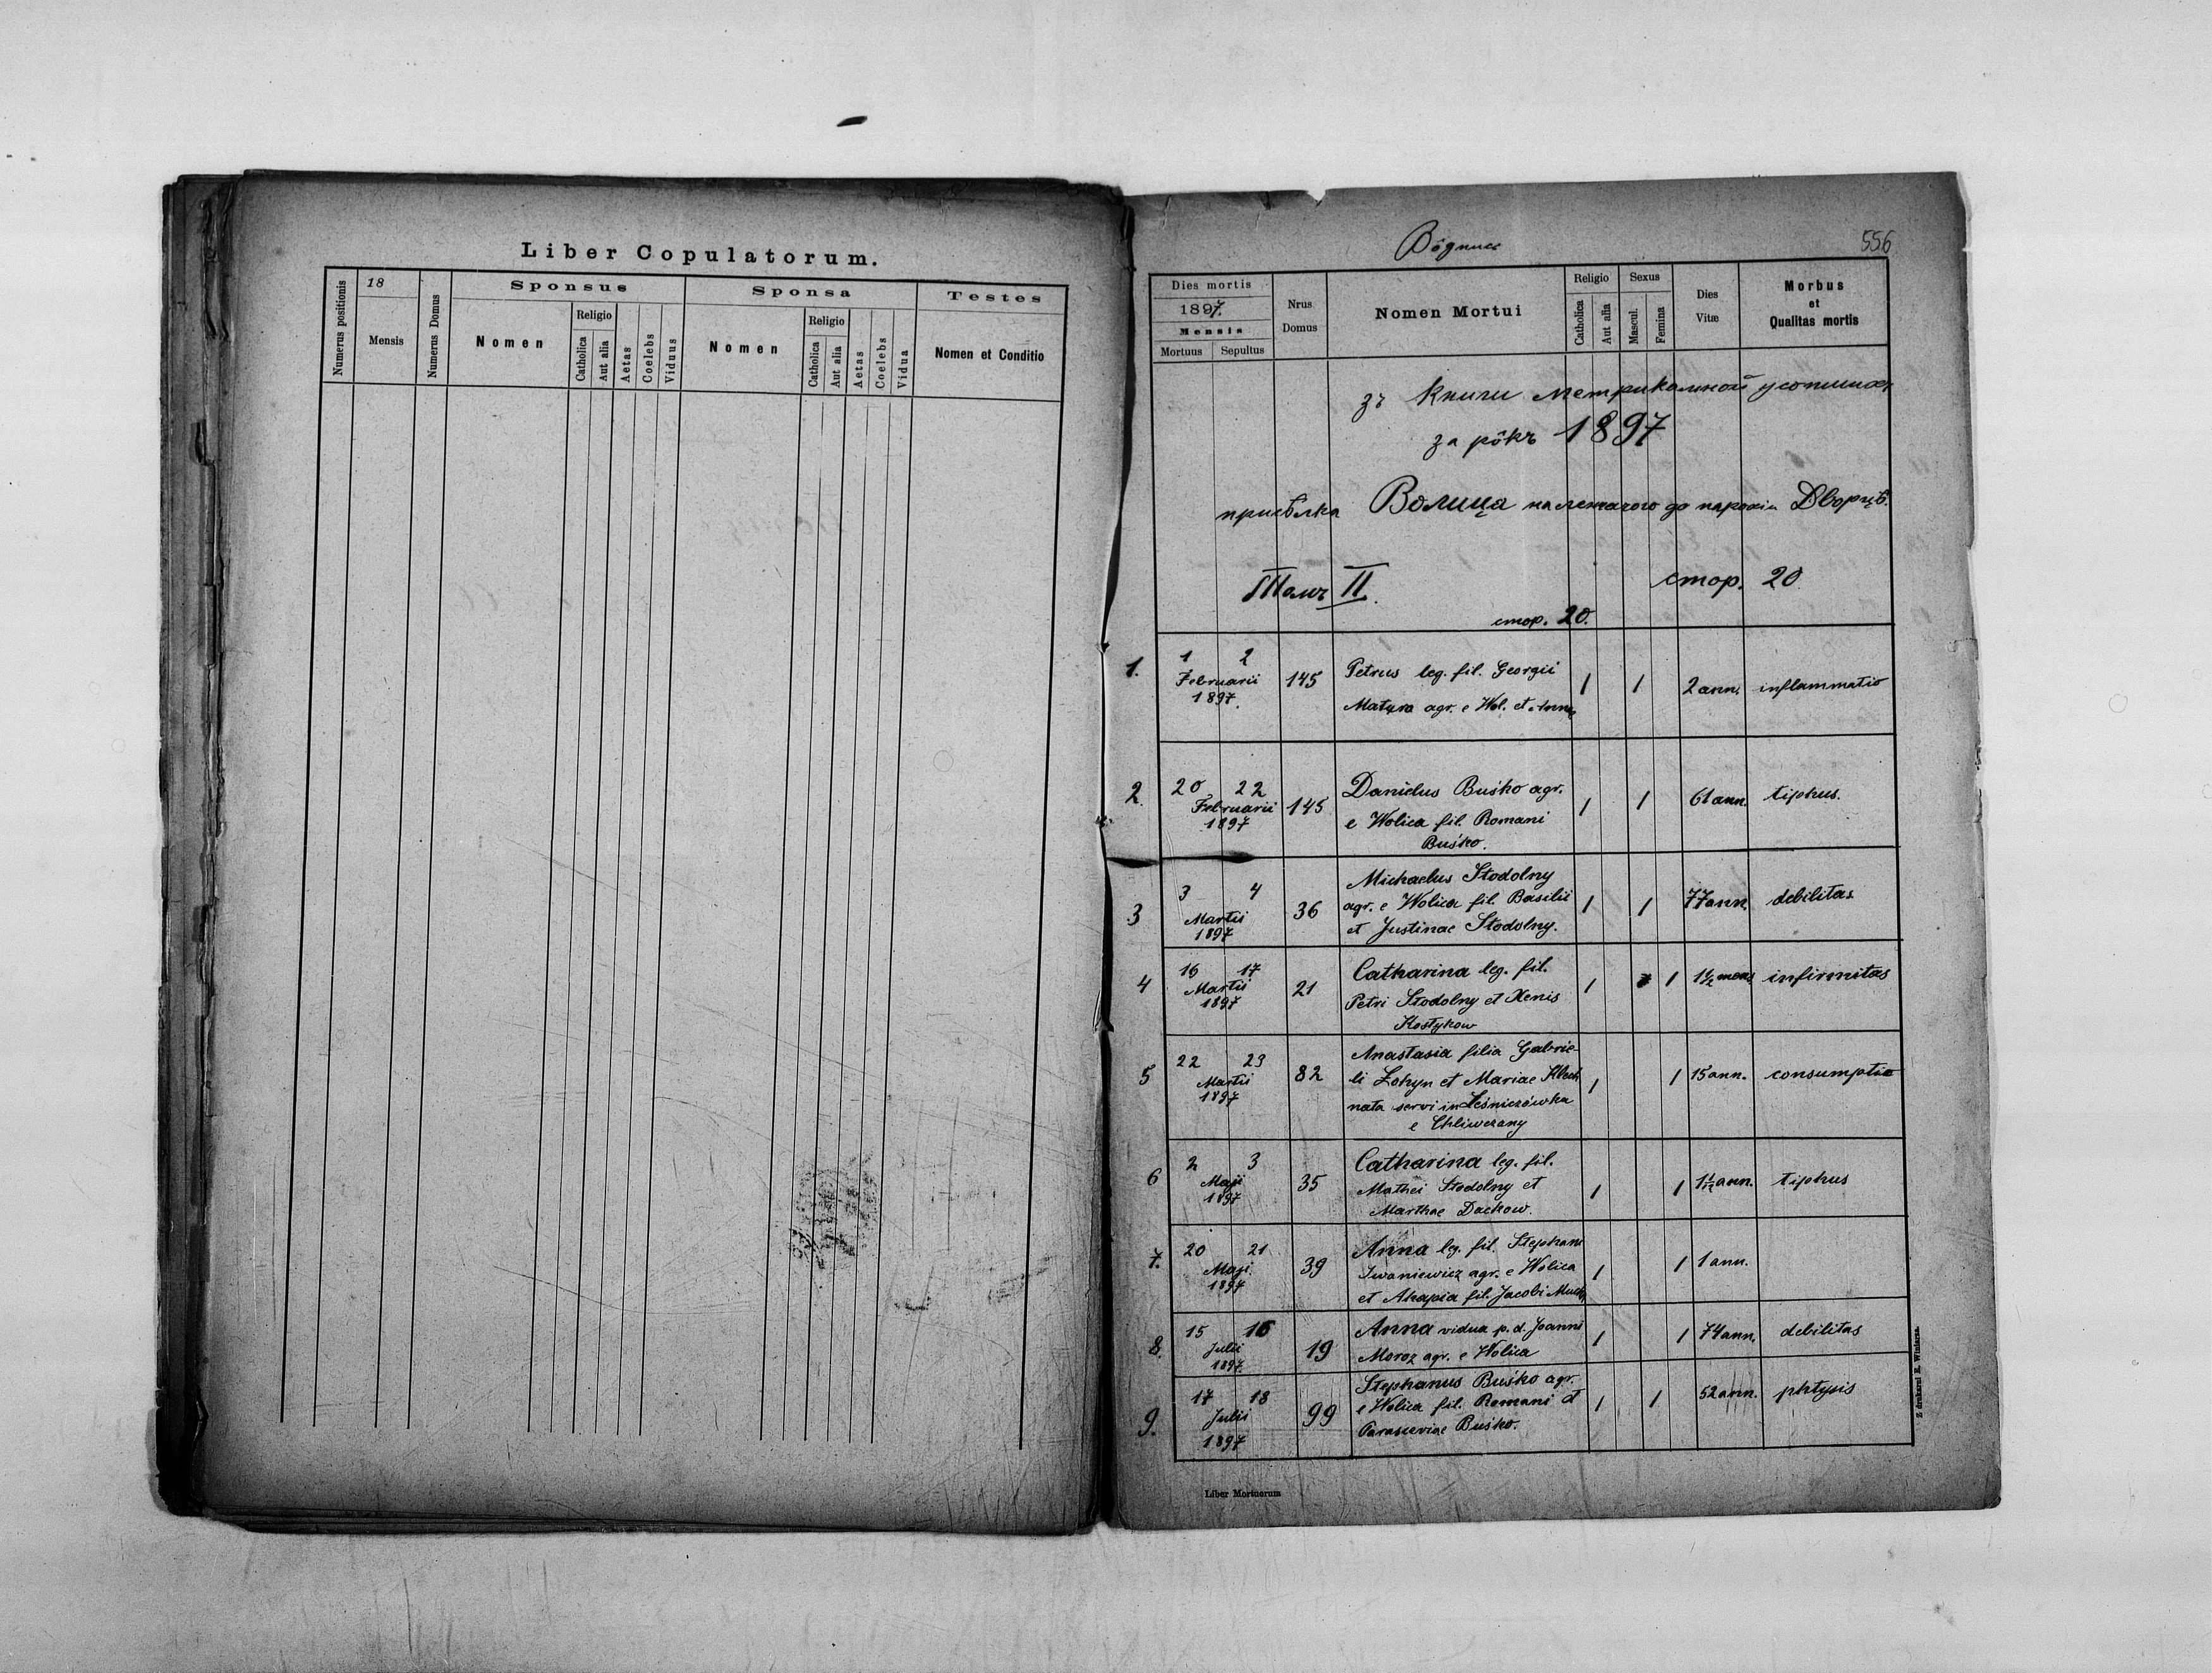 Liber Copulatorum.
Numerus positionis
18
Mensis
Numerus Domus
Sponsus
Nomen
Religio
Catholica
Aut alia
Aetas
Coelebs
Viduus
Sponsa
Nomen
Religio
Catholica
Aut alia
Aetas
Coelebs
Vidua
Testes
Nomen et Conditio
556
Dies mortis
1897.
Mensis
Mortuus Sepultus
Nrus Domus
Nomen Mortui
Religio
Catholica
Aut alia
Sexus
Mascul.
Femina
Dies Vitæ
Morbus
et
Qualitas mortis
зъ книги метрикальной усопшихъ
за рôкъ 1897
присѣлка Волица належачого до парохіи Дворцѣ.
Томъ II. стор. 20
стор. 20.
1. 1 2 Februarii 1897. 145 Petrus leg. fil. Georgii
Matyra agr. e Wol. et Annae 1 1 2 ann. inflammatio
2. 20 22 Februarii 1897 145 Danielus Buśko agr.
e Wolica fil. Romani
Buśko. 1 1 61 ann. tiphus.
3 3 4 Martii 1897 36 Michaelus Stodolny
agr. e Wolica fil. Basilii
et Justinae Stodolny. 1 1 77 ann. debilitas
4 16 17 Martii 1897 21 Catharina leg. fil.
Petri Stodolny et Xenis
Kostykow 1 1 1 1/2 mens infirmitas
5 22 23 Martii 1897 82 Anastasia filia Gabrie-
li Zohyn et Mariae
nata servi in Leśniczówka
e Chliwczany 1 1 15 ann. consumptio
6 2 3 Maji 1897 35 Catharina leg. fil.
Mathei Stodolny et
Marthae Dackow. 1 1 ann. tiphus
7. 20 21 Maji 1897 39 Anna leg. fil. Stephani
Iwaniewicz agr. e Wolica
et Ahapia fil. Jacobi 1 1 1 ann.
8. 15 16 Julii 1897. 19 Anna vidua p. d. Joanni
Moroz agr. e Wolica 1 1 74 ann. debilitas
9. 17 18 Julii 1897 99 Stephanus Buśko agr.
e Wolica fil. Romani et
Parasceviae Buśko. 1 1 52 ann. phtysis
Liber Mortuorum
Z drukarni E. Winiarza.